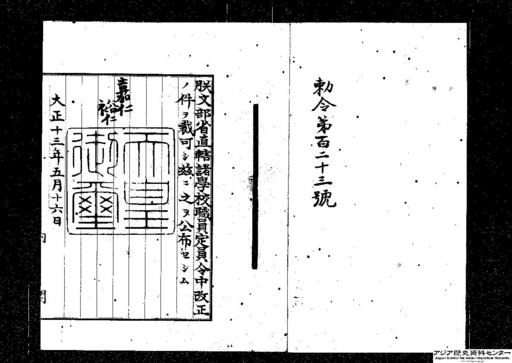 勅令第百二十三號
朕文部省直轄諸學校職員定員令中改正
ノ件ヲ裁可シ玆ニ之ヲ公布セシム
嘉仁
裕仁
天皇御璽
大正十三年五月十六日
内閣
アジア歴史資料センター
Japan Center for Asian Historical Records